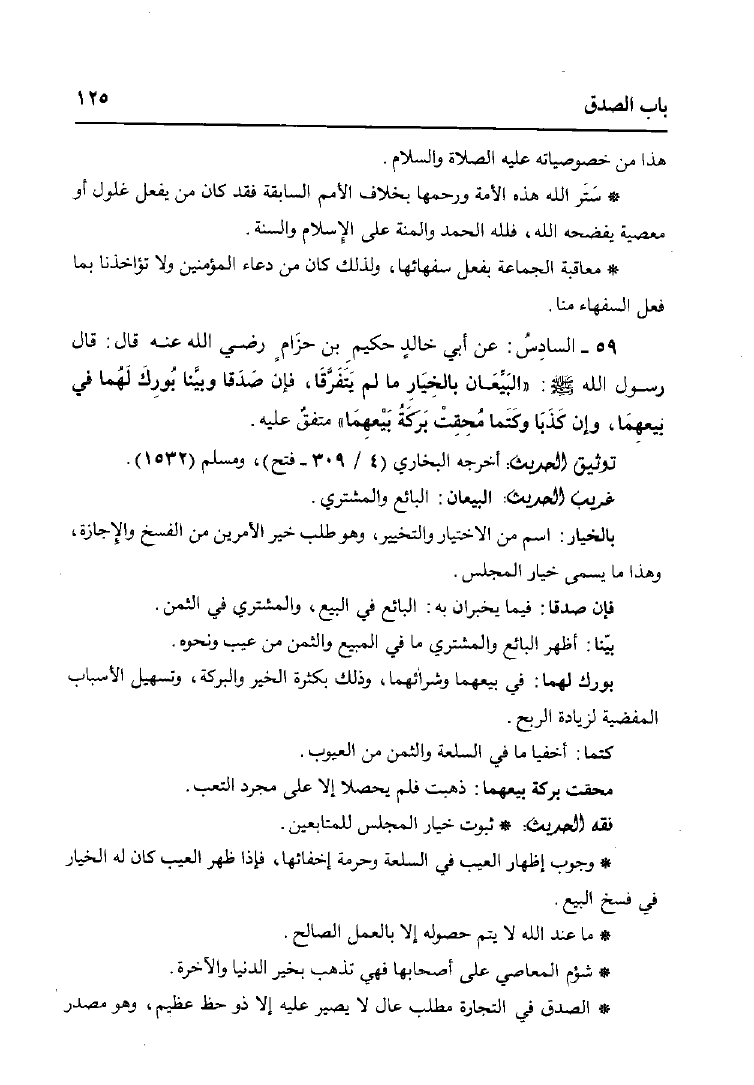 باب الصدق ١٢٥
هذا من خصوصياته عليه الصلاة والسلام .
* سَتَر الله هذه الأمة ورحمها بخلاف الأمم السابقة فقد كان من يفعل غلول أو
معصية يفضحه الله ، فلله الحمد والمنة على الإسلام والسنة .
* معاقبة الجماعة بفعل سفهائها ، ولذلك كان من دعاء المؤمنين ولا تؤاخذنا بما
فعل السفهاء منا .
٥٩ ـ السادسُ : عن أبي خالدٍ حكيم بن حزَام رضي الله عنه قال : قال
رسول الله ﷺ : «البَيِّعَان بالخِيَار ما لم يَتَفَرَّقا ، فإن صَدَقا وبيَّنا بُورِكَ لَهُما في
بَيعهِمَا ، وإن كَذَبَا وكَتَما مُحِقتْ بَرَكَةُ بَيْعهِمَا» متفقٌ عليه .
توثيق الحديث: أخرجه البخاري (٤ / ٣٠٩ ـ فتح) ، ومسلم (١٥٣٢) .
غريب الحديث: البيعان : البائع والمشتري .
بالخيار : اسم من الاختيار والتخيير ، وهو طلب خير الأمرين من الفسخ والإجازة ،
وهذا ما يسمى خيار المجلس .
فإن صدقا : فيما يخبران به : البائع في البيع ، والمشتري في الثمن .
بيّنا : أظهر البائع والمشتري ما في المبيع والثمن من عيب ونحوه .
بورك لهما : في بيعهما وشرائهما ، وذلك بكثرة الخير والبركة ، وتسهيل الأسباب
المفضية لزيادة الربح .
كتما : أخفيا ما في السلعة والثمن من العيوب .
محقت بركة بيعهما : ذهبت فلم يحصلا إلا على مجرد التعب .
فقه الحديث: * ثبوت خيار المجلس للمتابعين .
* وجوب إظهار العيب في السلعة وحرمة إخفائها ، فإذا ظهر العيب كان له الخيار
في فسخ البيع .
* ما عند الله لا يتم حصوله إلا بالعمل الصالح .
* شؤم المعاصي على أصحابها فهي تذهب بخير الدنيا والآخرة .
* الصدق في التجارة مطلب عال لا يصير عليه إلا ذو حظ عظيم ، وهو مصدر